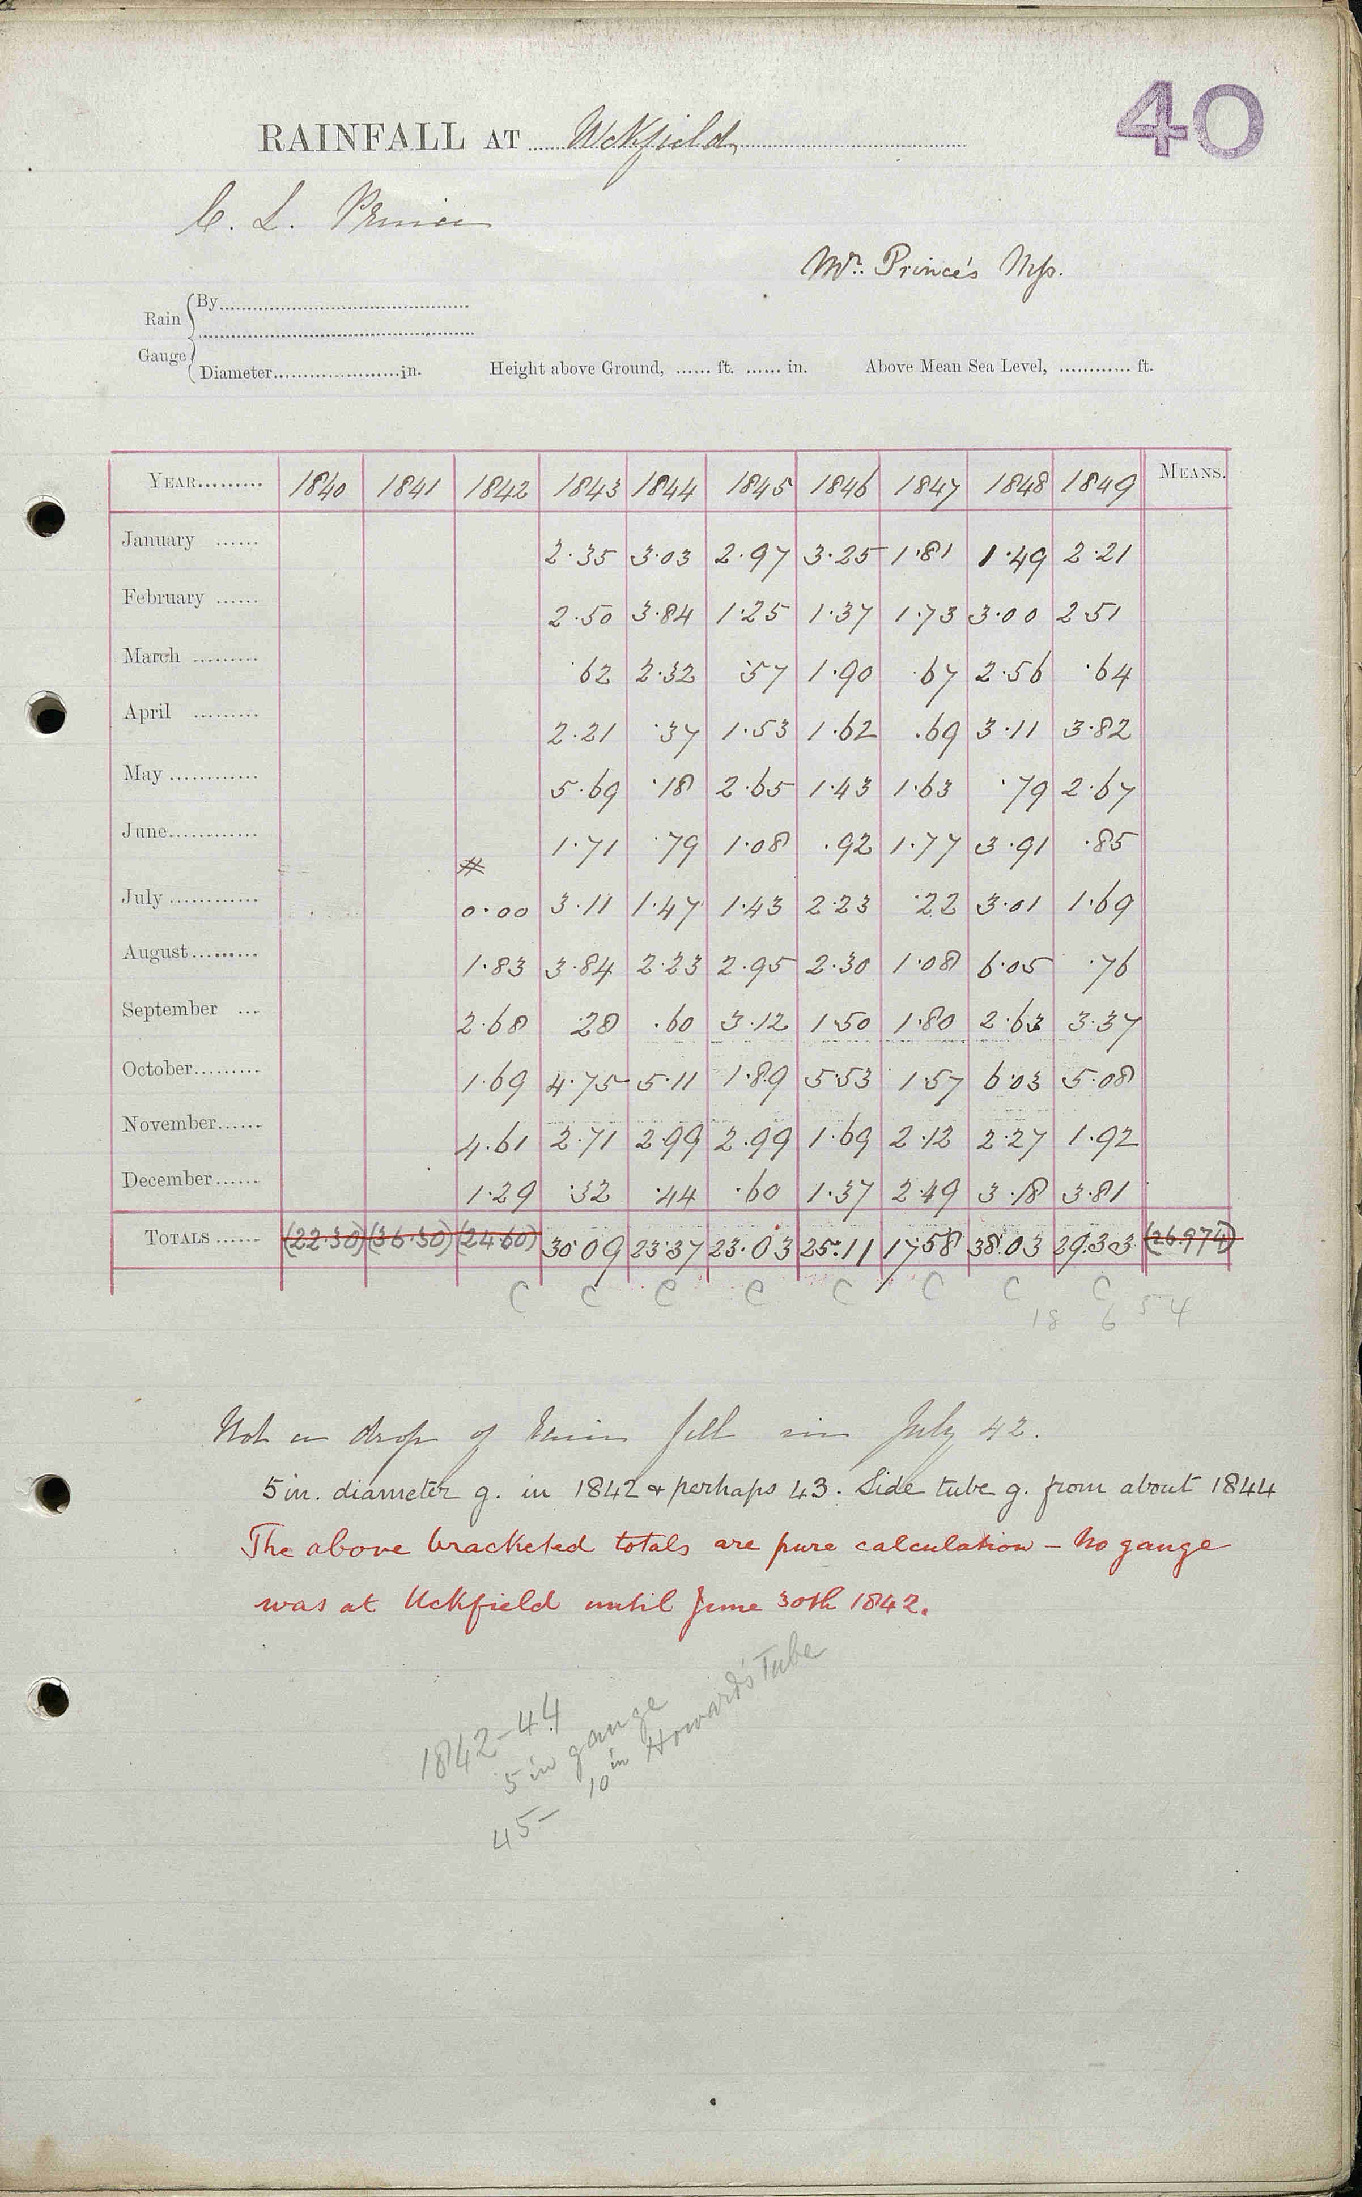 40
RAINFALL AT Uckfield
C. L. Prince
Mr. Prince's Mss.
Rain Gauge
By
Diameter in. Height above Ground, ft. in. Above Mean Sea Level, ft.
YEAR 1840 1841 1842 1843 1844 1845 1846 1847 1848 1849 MEANS.
January 2.35 3.03 2.97 3.25 1.81 1.49 2.21
February 2.50 3.84 1.25 1.37 1.73 3.00 2.51
March .62 2.32 .57 1.90 .67 2.56 .64
April 2.21 .37 1.53 1.62 .69 3.11 3.82
May 5.69 .18 2.65 1.43 1.63 .79 2.67
June 1.71 .79 1.08 .92 1.77 3.91 .85
July 0.00 3.11 1.47 1.43 2.23 .22 3.01 1.69
August 1.83 3.84 2.23 2.95 2.30 1.08 6.05 .76
September 2.68 .28 .60 3.12 1.50 1.80 2.63 3.37
October 1.69 4.75 5.11 1.89 5.53 1.57 6.03 5.08
November 4.61 2.71 2.99 2.99 1.69 2.12 2.27 1.92
December 1.29 .32 .44 .60 1.37 2.49 3.18 3.81
TOTALS (22.30) (36.30) (24.60) 30.09 23.37 23.03 25.11 17.58 38.03 29.33 (26.974)
C C C C C C C C
18 6 54
Not a drop of rain fell in July 42.
5 in. diameter g. in 1842 & perhaps 43. Side tube g. from about 1844
The above bracketed totals are pure calculation – No gauge
was at Uckfield until June 30th 1842.
1842–44
5 in gauge
45– 10 in Howard's Tube